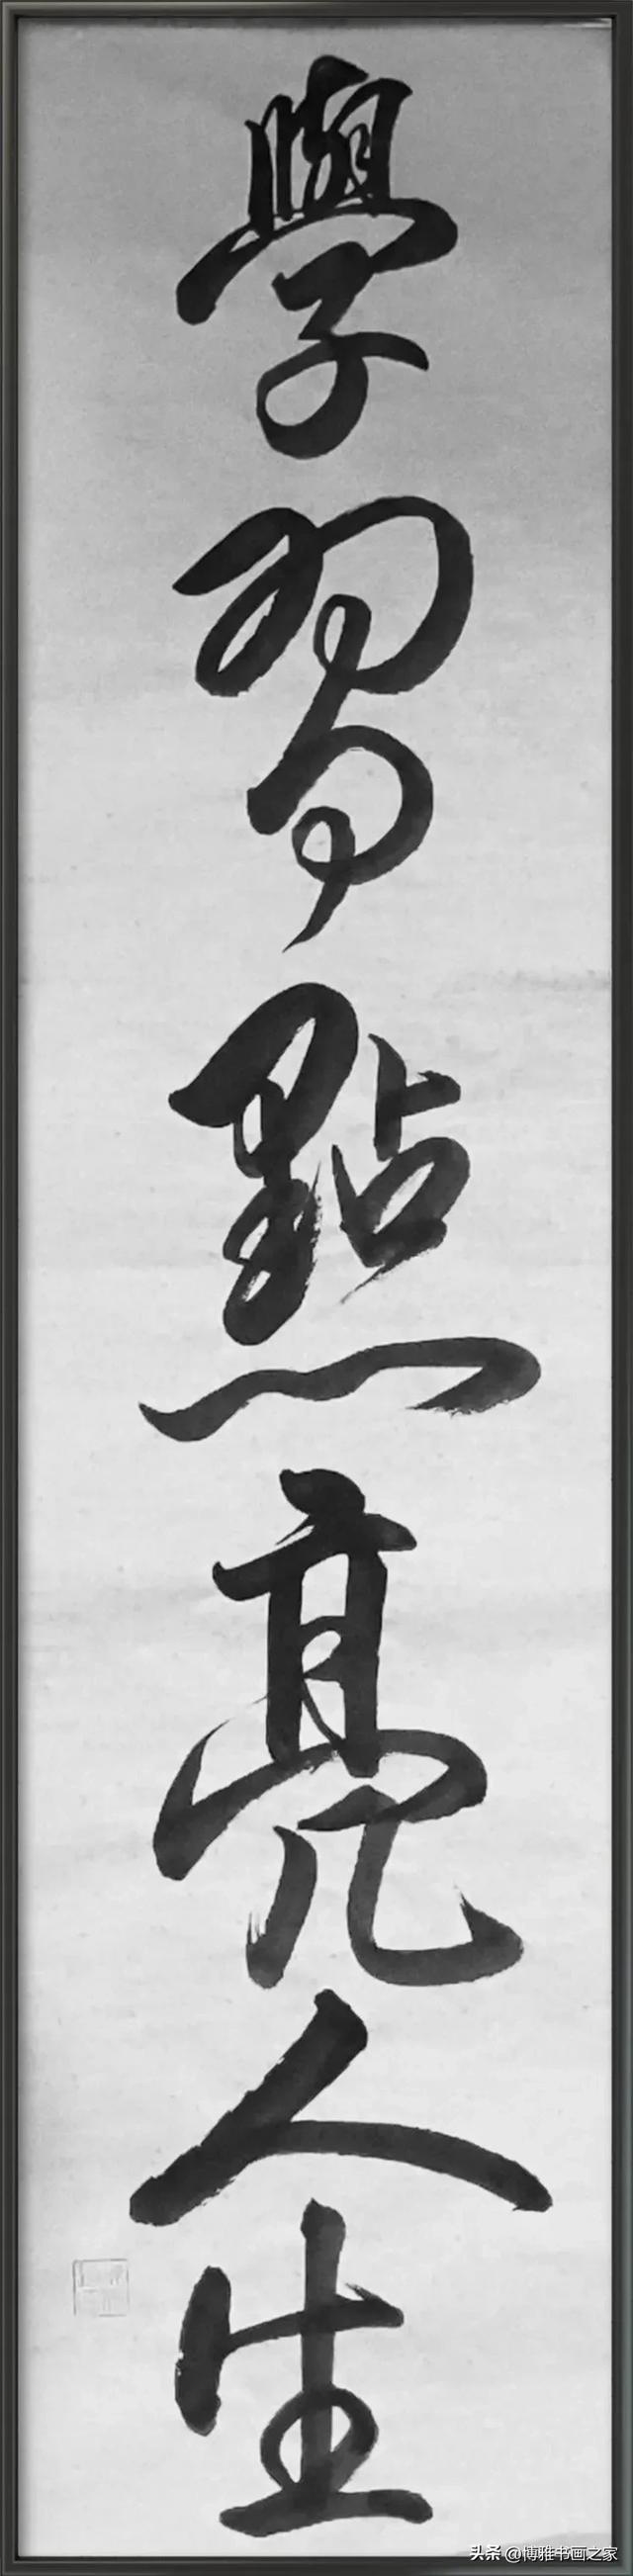 學習點亮人生
头条 @博雅书画之家